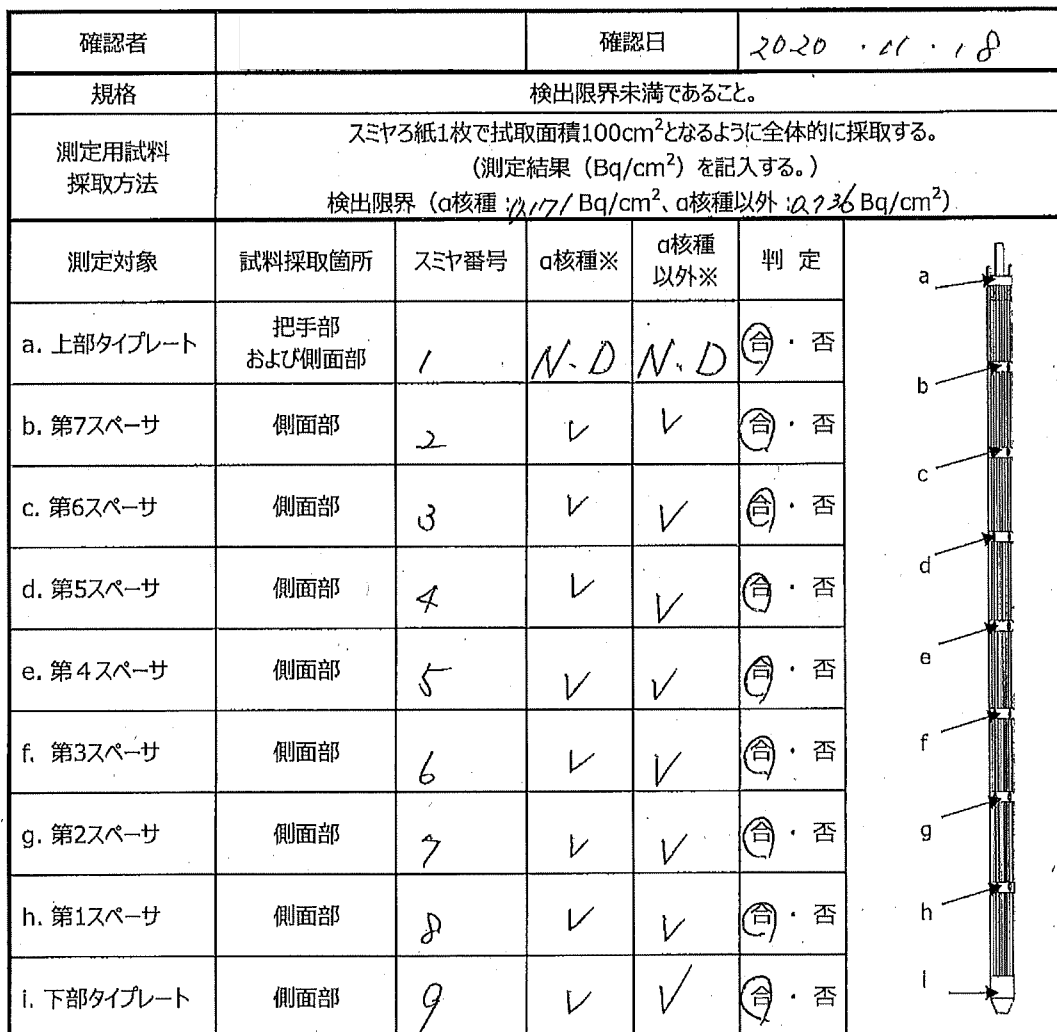 確認者 確認日 2020・11・18
規格 検出限界未満であること。
測定用試料
採取方法
スミヤろ紙1枚で拭取面積100cm²となるように全体的に採取する。
(測定結果(Bq/cm²)を記入する。)
検出限界(α核種: Bq/cm²、α核種以外: Bq/cm²)
測定対象 試料採取箇所 スミヤ番号 α核種※ α核種
以外※ 判 定
a. 上部タイプレート 把手部
および側面部 1 N.D N.D 合・否
b. 第7スペーサ 側面部 2 V V 合・否
c. 第6スペーサ 側面部 3 V V 合・否
d. 第5スペーサ 側面部 4 V V 合・否
e. 第4スペーサ 側面部 5 V V 合・否
f. 第3スペーサ 側面部 6 V V 合・否
g. 第2スペーサ 側面部 7 V V 合・否
h. 第1スペーサ 側面部 8 V V 合・否
i. 下部タイプレート 側面部 9 V V 合・否
a
b
c
d
e
f
g
h
i